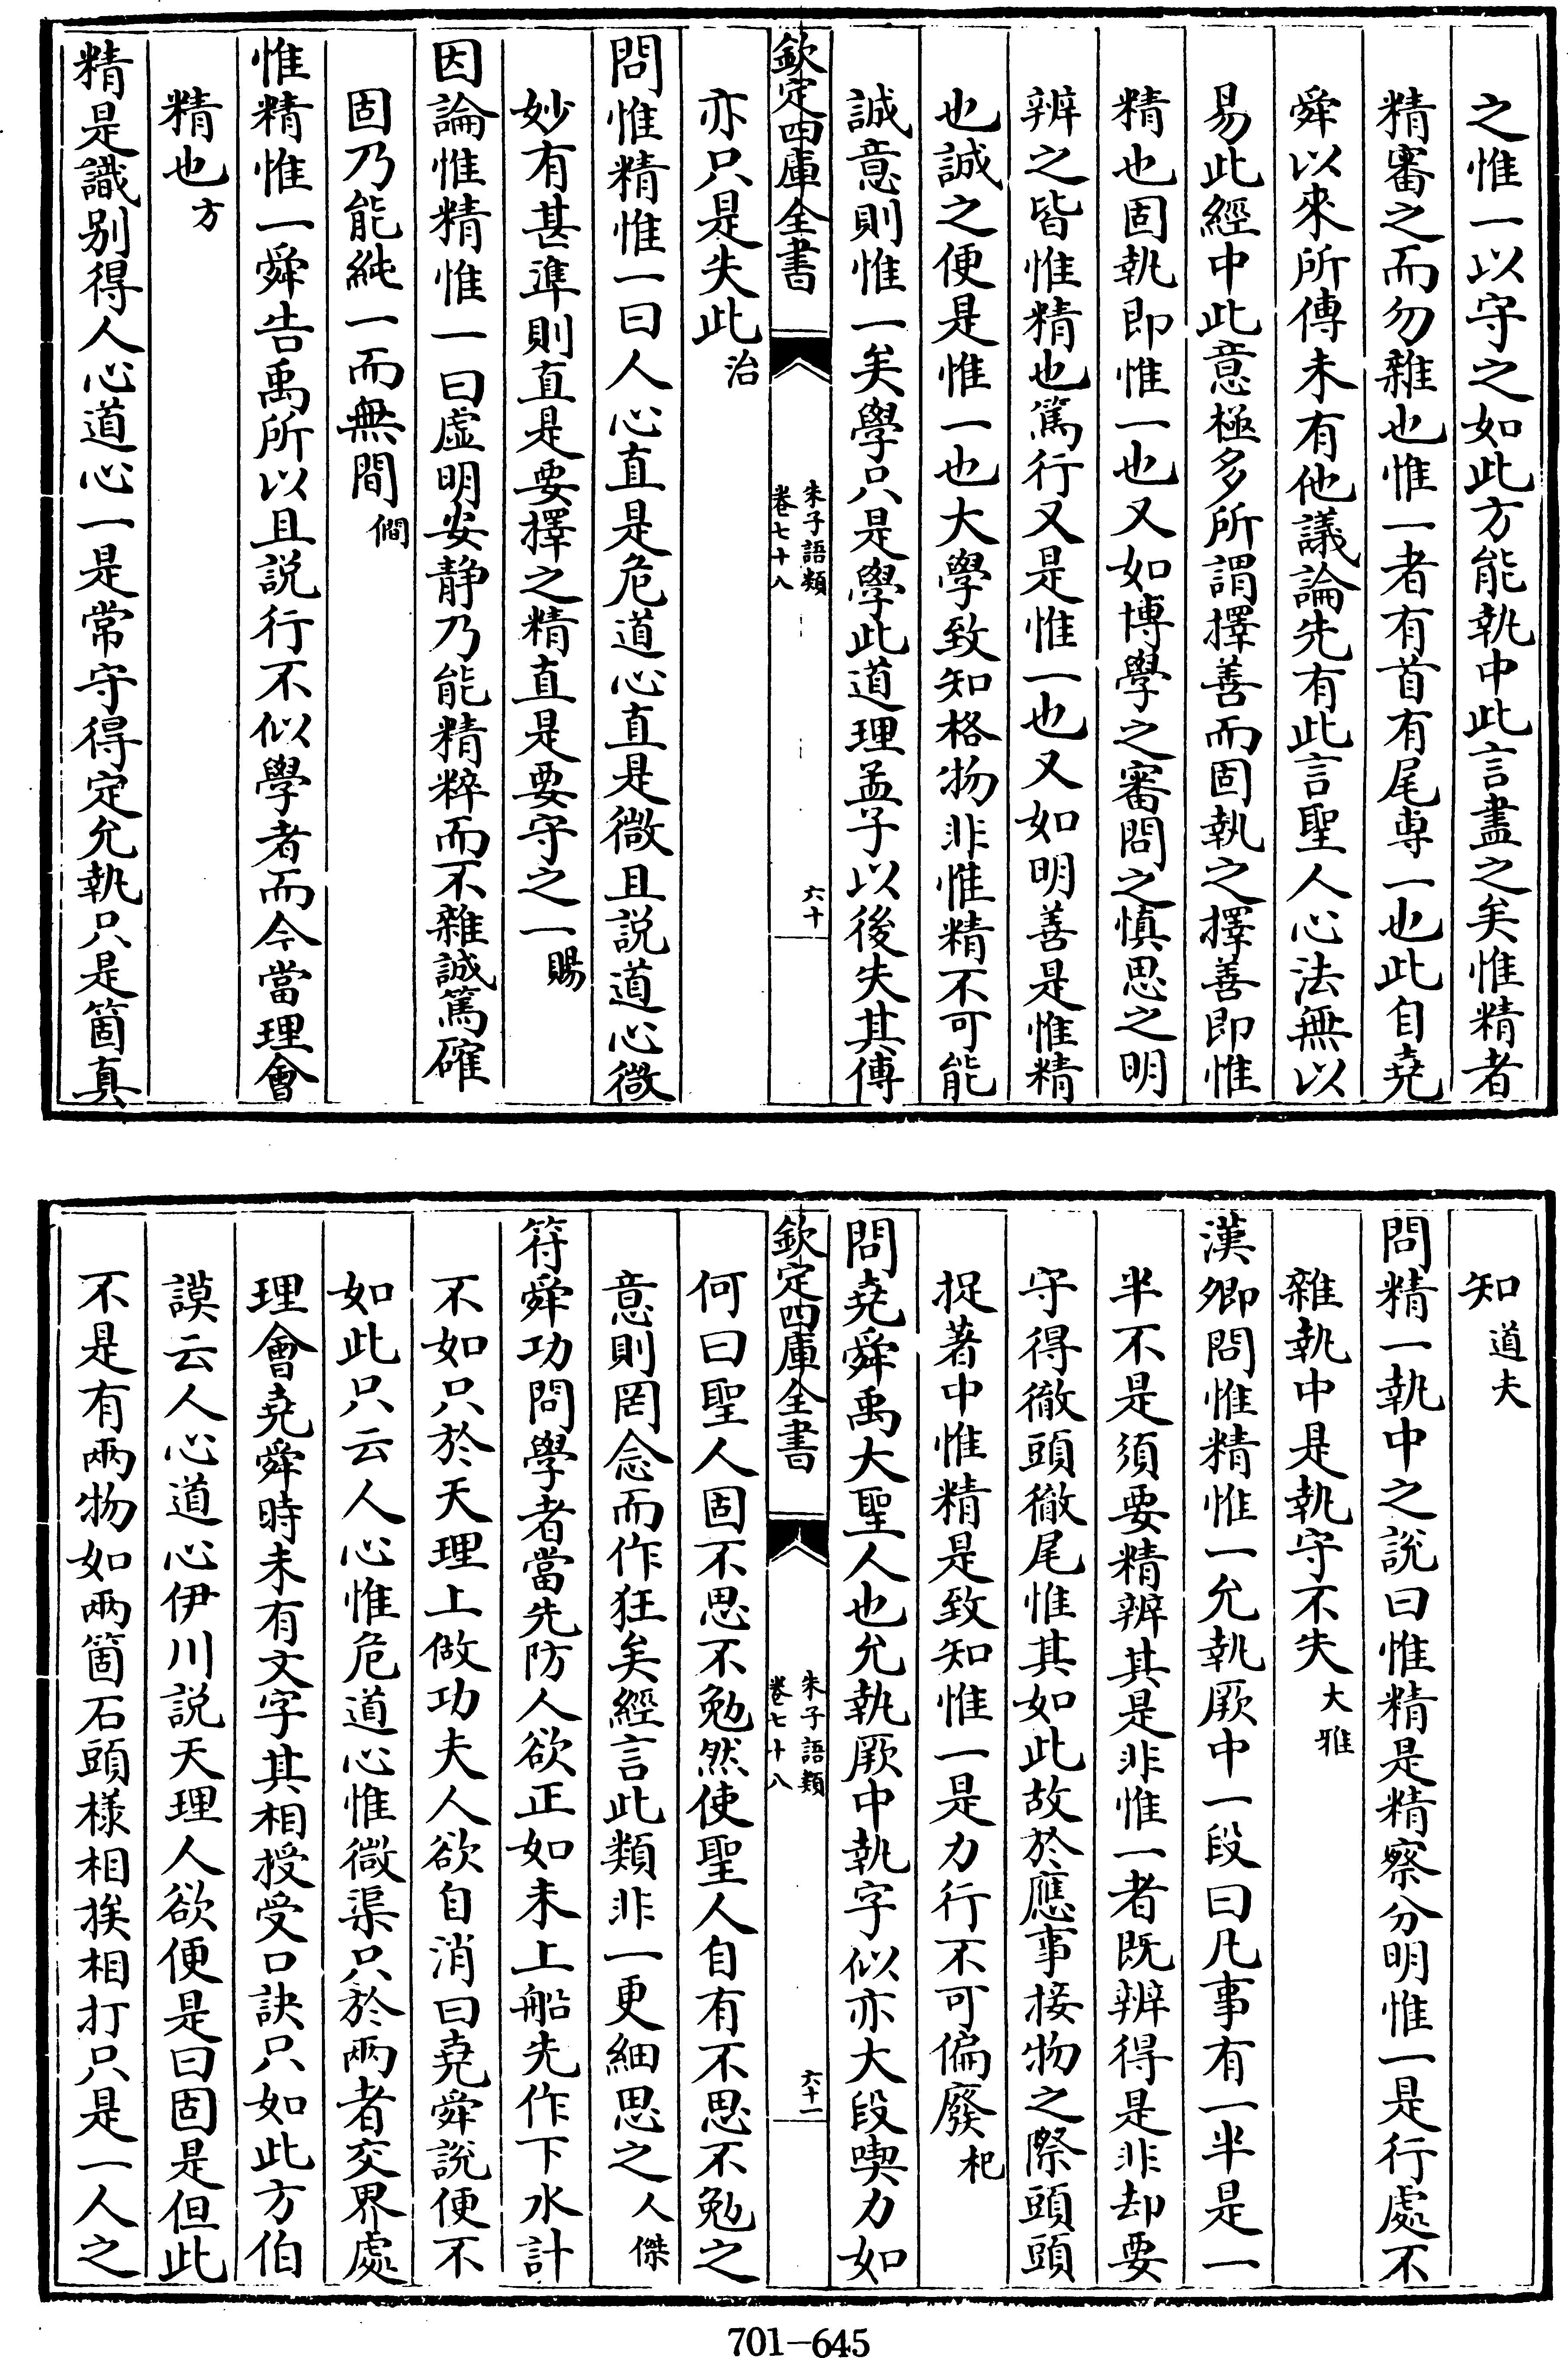 之惟一以守之如此方能執中此言盡之矣惟精者
精審之而勿雜也惟一者有首有尾専一也此自堯
舜以來所傳未有他議論先有此言聖人心法無以
易此經中此意極多所謂擇善而固執之擇善即惟
精也固執即惟一也又如博學之審問之慎思之明
辨之皆惟精也篤行又是惟一也又如明善是惟精
也誠之便是惟一也大學致知格物非惟精不可能
誠意則惟一矣學只是學此道理孟子以後失其傳
欽定四庫全書
朱子語類
卷七十八
六十
亦只是失此治
問惟精惟一曰人心直是危道心直是微且説道心微
妙有甚準則直是要擇之精直是要守之一賜
因論惟精惟一曰虚明安静乃能精粹而不雜誠篤確
固乃能純一而無間僩
惟精惟一舜告禹所以且説行不似學者而今當理會
精也方
精是識别得人心道心一是常守得定允執只是箇真
知道夫
問精一執中之説曰惟精是精察分明惟一是行處不
雜執中是執守不失大雅
漢卿問惟精惟一允執厥中一段曰凡事有一半是一
半不是須要精辨其是非惟一者既辨得是非却要
守得徹頭徹尾惟其如此故於應事接物之際頭頭
捉著中惟精是致知惟一是力行不可偏廢杞
問堯舜禹大聖人也允執厥中執字似亦大段喫力如
欽定四庫全書
朱子語類
卷七十八
六十一
何曰聖人固不思不勉然使聖人自有不思不勉之
意則罔念而作狂矣經言此類非一更細思之人傑
符舜功問學者當先防人欲正如未上船先作下水計
不如只於天理上做功夫人欲自消曰堯舜説便不
如此只云人心惟危道心惟微渠只於兩者交界處
理會堯舜時未有文字其相授受口訣只如此方伯
謨云人心道心伊川説天理人欲便是曰固是但此
不是有兩物如兩箇石頭様相挨相打只是一人之
701-645